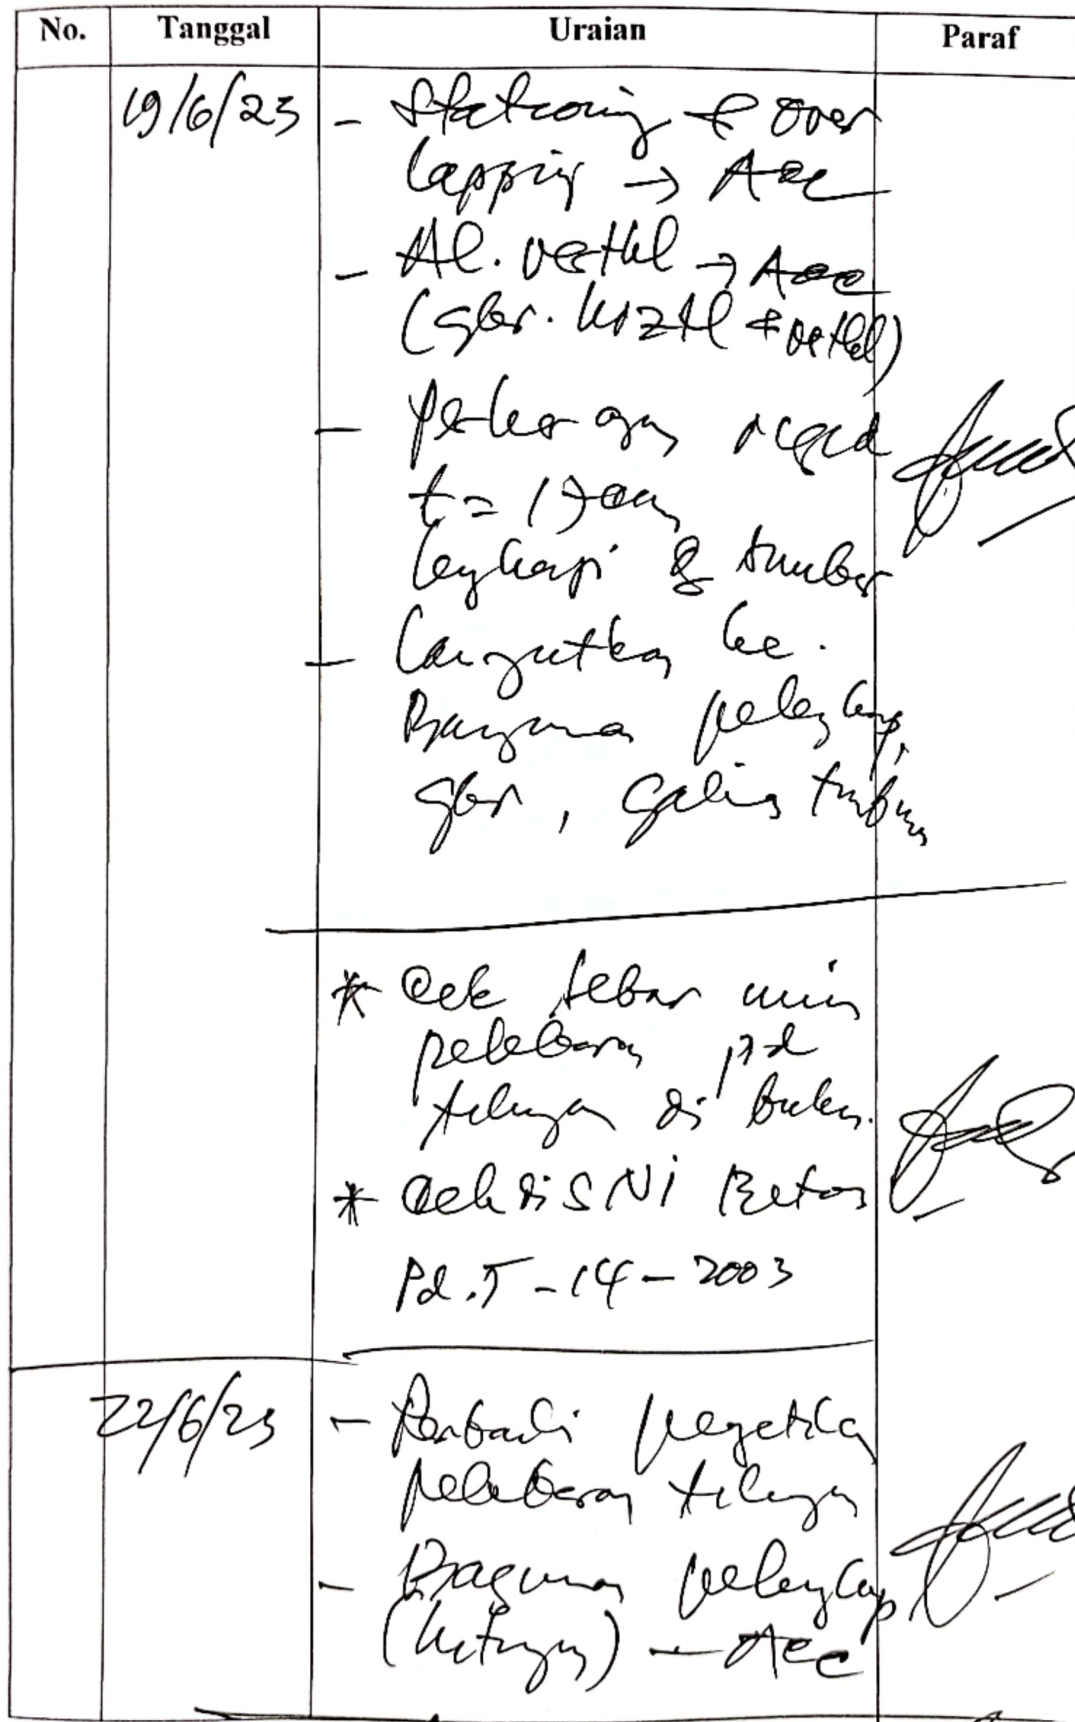 No. Tanggal Uraian Paraf
19/6/23 - Stationing & over
lapping → Acc
- Al. vertkl → Acc
(gbr. hrztl & vertkl)
- perkerasan rigid
t = 17 cm
lengkapi & sumber
- Lanjutkan ke.
Bangunan pelengkap,
gbr, galian timbunan
* Cek lebar min
pelebaran pd
tikungan di buku.
* Cek di SNI Beton
Pd.T-14-2003
22/6/23 - Perbaiki pengetikan
pelebaran tikungan
- Bangunan pelengkap
(hitungan) - Acc